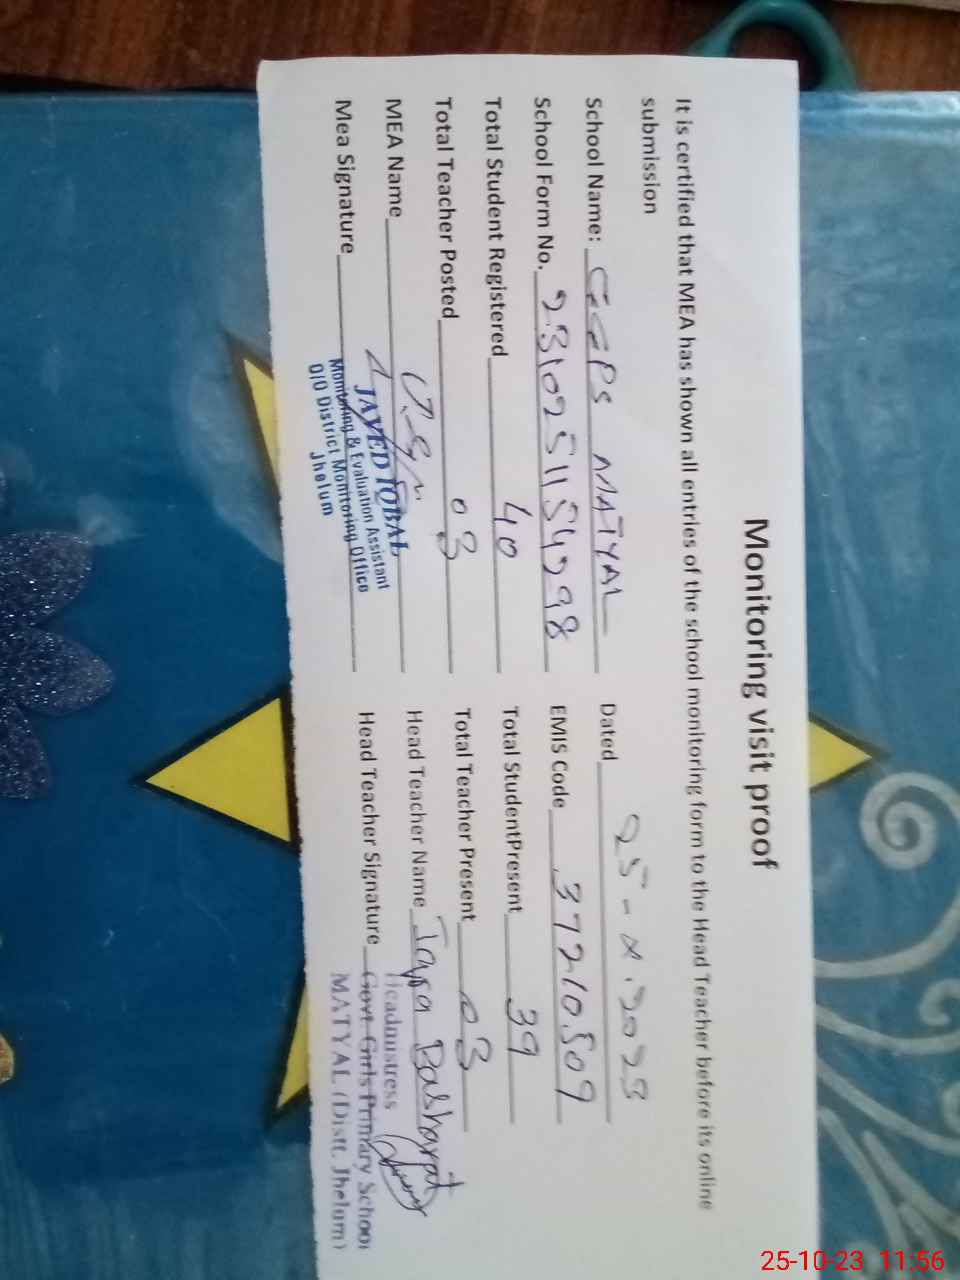 Monitoring visit proof
It is certified that MEA has shown all entries of the school monitoring form to the Head Teacher before its online
submission
School Name: GGPS MATYAL Dated 25-X-2023
School Form No. 2310251154998 EMIS Code 37210509
Total Student Registered 40 Total StudentPresent 39
Total Teacher Posted 03 Total Teacher Present 03
MEA Name Head Teacher Name Basharat
JAVED IQBAL
Monitoring & Evaluation Assistant
O/O District Monitoring Office
Jhelum
Mea Signature Head Teacher Signature
Headmistress
Govt. Girls Primary School
MATYAL (Distt. Jhelum)
25-10-23 11:56